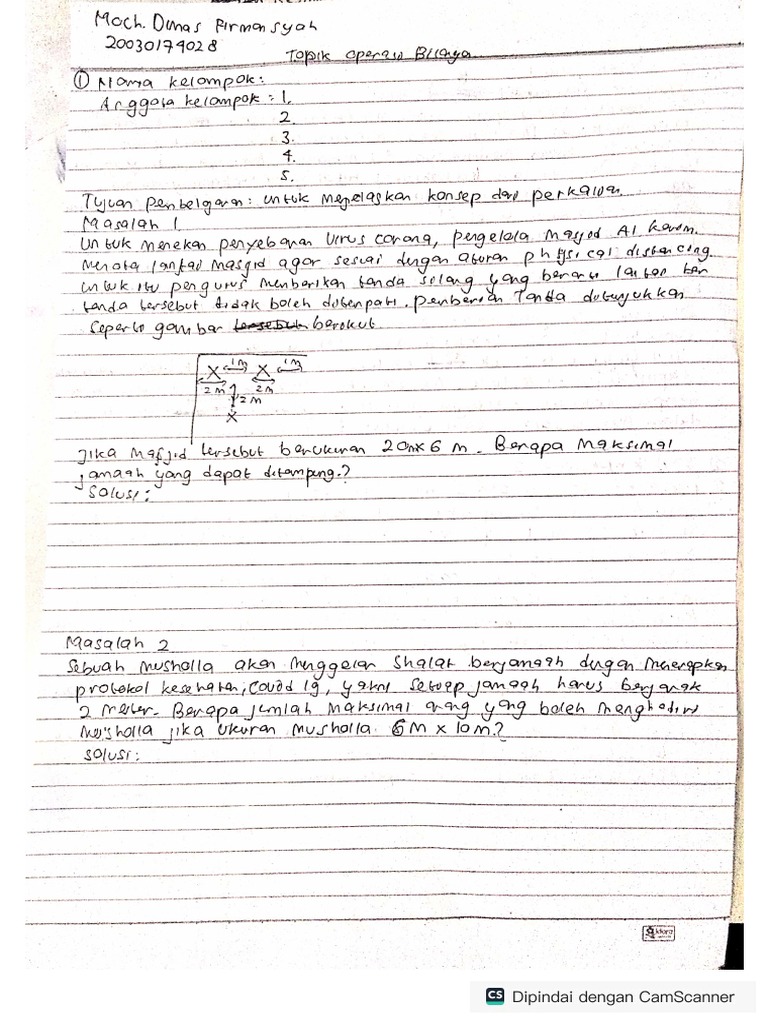 Moch. Dimas Firmansyah
20030174028
Topik operasi Bilaya
① Nama kelompok:
Anggota kelompok : 1.
2.
3.
4.
5.
Tujuan penbelgaran: untuk menjelaskan konsep dari perkalian
Masalah 1
Untuk menekan penyebaran virus corona, pengelola masjid Al karom.
menata lantai masjid agar sesuai dengan aturan physical distancing.
untuk itu pengurus memberikan tanda silang yang berarti lantai ber
tanda tersebut tidak boleh ditempati. pemberian Tanda ditunjukkan
Seperti gambar tersebut berikut
X 1m X 1m
2 m 2m
2 m
X
Jika masjid tersebut berukuran 20m x 6 m. Berapa maksimal
jamaah yang dapat ditampung.?
Solusi:
Masalah 2
Sebuah musholla akan menggelar shalat berjamaah dengan menerapkan
protokol kesehatan, covid 19, yakni setiap jamaah harus berjarak
2 meter. Berapa jumlah maksimal orang yang boleh menghadiri
musholla jika ukuran musholla 6 m x 10 m.?
solusi:
CS Dipindai dengan CamScanner